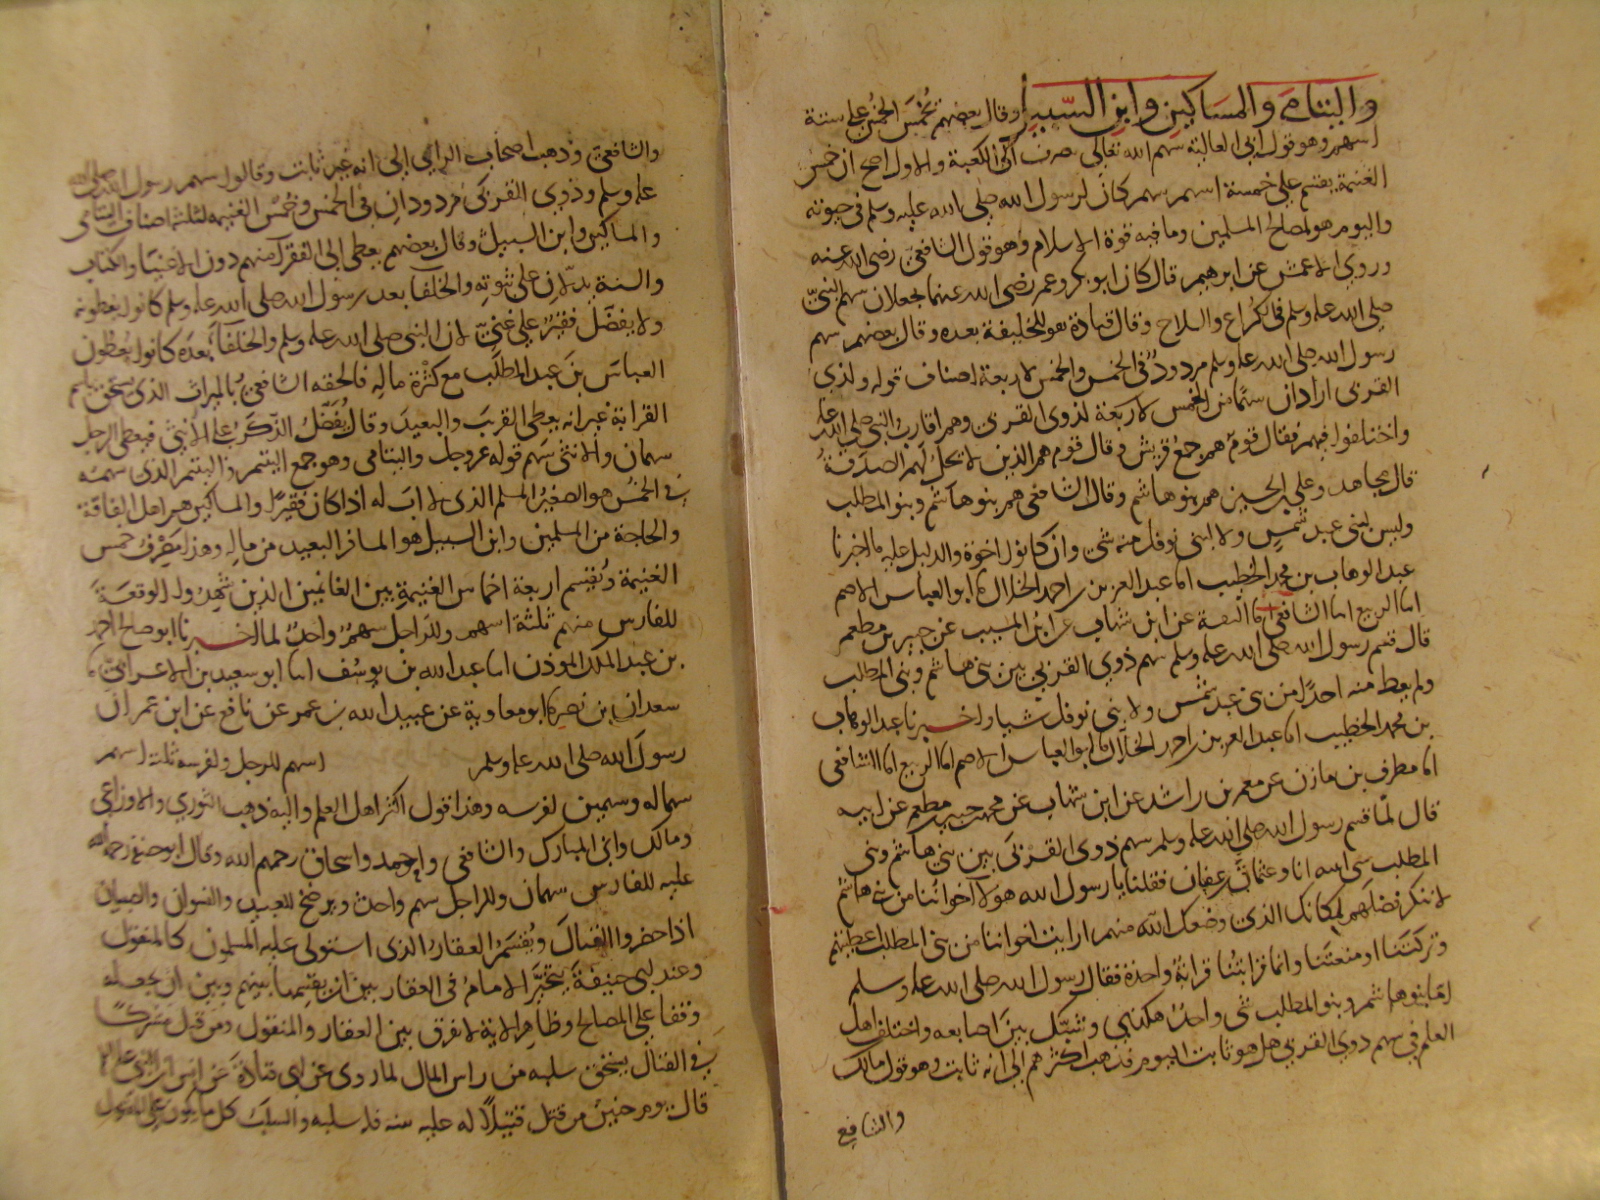 واليتامى والمساكين وابن السبيل وقال بعضهم تخمس الخمس على ستة
اسهم وهو قول ابي العالية سهم الله تعالى يصرف الى الكعبة والاول اصح ان خمس
الغنيمة يقسم على خمسة اسهم سهم كان لرسول الله صلى الله عليه وسلم في حيوته
واليوم هو لمصالح المسلمين وما فيه قوة الاسلام وهو قول الشافعي رضي الله عنه
وروى الاعمش عن ابرهيم قال كان ابو بكر وعمر رضي الله عنهما يجعلان سهم النبي
صلى الله عليه وسلم في الكراع والسلاح وقال قتادة هو للخليفة بعده وقال بعضهم سهم
رسول الله صلى الله عليه وسلم مردود في الخمس والخمس لاربعة اصناف قوله ولذي
القربى اراد ان سهما من الخمس لاربعة لذوي القربى وهم اقارب النبي صلى الله عليه
واختلفوا فيهم فقال قوم هم جمع قريش وقال قوم هم الذين لا تحل لهم الصدقة
قال مجاهد وعلي بن الحسين هم بنو هاشم وقال الشافعي هم بنو هاشم وبنو المطلب
وليس لبني عبد شمس ولا لبني نوفل منه شئ وان كانوا اخوة والدليل عليه ما اخبرنا
عبد الوهاب بن محمد الخطيب انا عبد العزيز بن احمد الخلال نا ابو العباس الاصم
انا الربيع انا الشافعي انا الثقة عن ابن شهاب عن ابن المسيب عن جبير بن مطعم
قال قسم رسول الله صلى الله عليه وسلم سهم ذوي القربى بين بني هاشم وبني المطلب
ولم يعط منه احدا من بني عبد شمس ولا بني نوفل شيا واخبرنا عبد الوهاب
بن محمد الخطيب انا عبد العزيز بن احمد الخلال نا ابو العباس الاصم انا الربيع انا الشافعي
انا مطرف بن مازن عن معمر بن راشد عن ابن شهاب عن محمد بن جبير بن مطعم عن ابيه
قال لما قسم رسول الله صلى الله عليه وسلم سهم ذوي القربى بين بني هاشم وبني
المطلب انا وعثمان بن عفان فقلنا يا رسول الله هولا اخواننا من بني هاشم
لا ننكر فضلهم لمكانك الذي وضعك الله منهم ارايت اخواننا من بني المطلب اعطيتهم
وتركتنا او منعتنا وانما قرابتنا قرابة واحدة فقال رسول الله صلى الله عليه وسلم
انما بنو هاشم وبنو المطلب شى واحد هكذى وشبك بين اصابعه واختلف اهل
العلم في سهم ذوي القربى هل هو ثابت اليوم فذهب اكثرهم الى انه ثابت وهو قول مالك
والشافعي
والشافعي وذهب اصحاب الراي الى انه غير ثابت وقالوا سهم رسول الله صلى الله
عليه وسلم وذوي القربى مردودان في الخمس وخمس الغنيمه لثلثة اصناف اليتامى
والمساكين وابن السبيل وقال بعضهم يعطى الى الفقرا منهم دون الاغنيا والكتاب
والسنة يدلان على ثبوته والخلفا بعد رسول الله صلى الله عليه وسلم كانوا يعطونه
ولا يفضل فقير على غني لان النبي صلى الله عليه وسلم والخلفا بعده كانوا يعطون
العباس بن عبد المطلب مع كثرة ماله فالحقه الشافعي بالميراث الذي يستحق باسم
القرابة غير انه يعطى القريب والبعيد وقال يفضل الذكر على الانثى فيعطى الرجل
سهمان والانثى سهم قوله عز وجل واليتامى وهو جمع اليتيم واليتيم الذي سهمه
في الخمس هو الصغير المسلم الذي لا اب له اذا كان فقيرا والمساكين هم اهل الفاقة
والحاجة من المسلمين وابن السبيل هو المسافر البعيد من ماله وهذا مصرف خمس
الغنيمة ويقسم اربعة اخماس الغنيمة بين الغانمين الذين شهدوا الوقعة
للفارس منهم ثلثة اسهم وللراجل سهم واحد لما اخبرنا ابو صالح احمد
بن عبد الملك الموذن انا عبد الله بن يوسف انا ابو سعيد بن الاعرابي
سعدان بن نصر نا ابو معاوية عن عبيد الله بن عمر عن نافع عن ابن عمر ان
رسول الله صلى الله عليه وسلم اسهم للرجل ولفرسه ثلثة اسهم
سهما له وسهمين لفرسه وهذا قول اكثر اهل العلم واليه ذهب الثوري والاوزاعي
ومالك وابن المبارك والشافعي واحمد واسحاق رحمهم الله وقال ابو حنيفة رحمة الله
عليه للفارس سهمان وللراجل سهم واحد ويرضخ للعبيد والنسوان والصبيان
اذا حضروا القتال ويقسم العقار الذي استولى عليه المسلمون كالمنقول
وعند ابي حنيفة يتخير الامام في العقار بين ان يقسمها بينهم وبين ان يجعله
وقفا على المصالح وظاهر الاية لا فرق بين العقار والمنقول ومن قتل مشركا
في القتال يستحق سلبه من راس المال لما روى عن ابي قتادة
قال يوم حنين من قتل قتيلا له عليه بينه فله سلبه والسلب كل ما يكون على المقتول